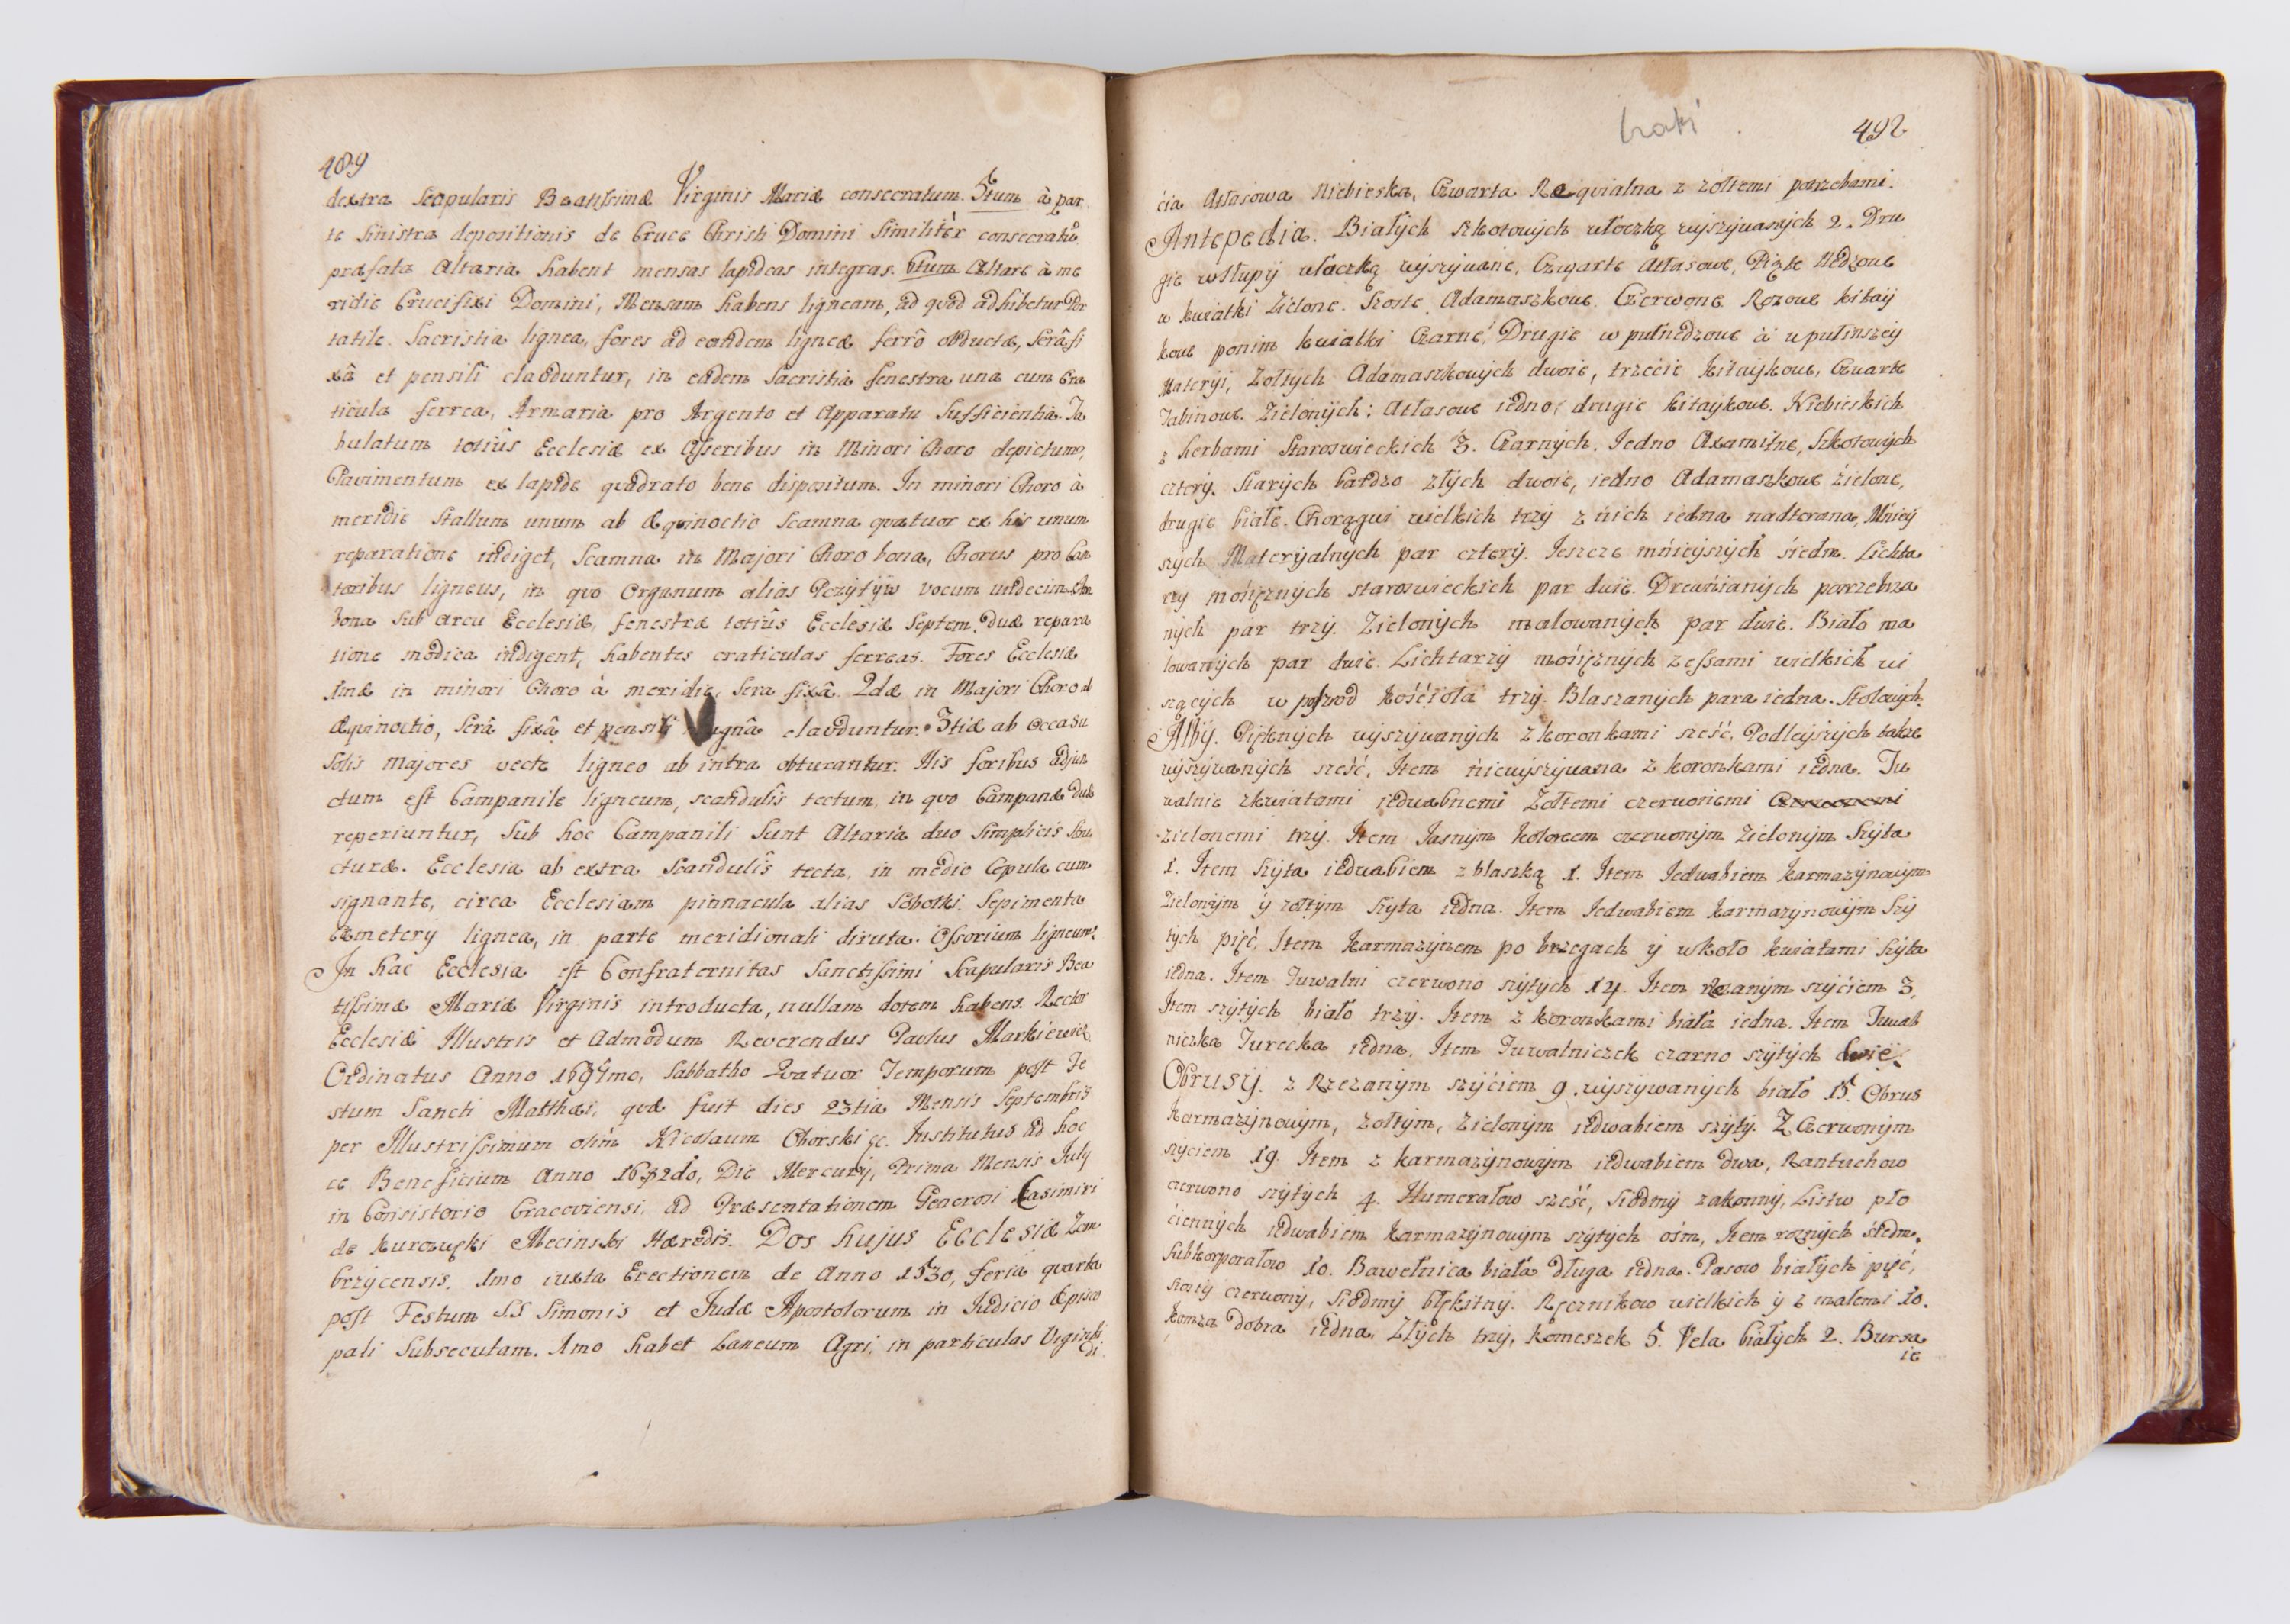 489
dextra Scapularis Beatissimæ Virginis Mariæ consecratum. 5tum à par
te sinistra depositionis de Cruce Christi Domini similitèr consecratū
præfata Altaria habent mensas lapideas integras. 6tum Altare à me
ridie Crucifixi Domini, Mensam habens ligneam, ad quod adhibetur Por
tatile. Sacristia lignea, fores ad eandem ligneæ ferrô obductæ, serâ fi
xâ et pensili clauduntur, in eadem Sacristia fenestra una cum Cra
ticula ferrea, Armaria pro Argento et Apparatu Sufficientia. Ta
bulatum totiûs Ecclesiæ ex Asseribus in Minori Choro depictum,
Pavimentum ex lapide quadrato bene dispositum. In minori Choro à
meridie Stallum unum ab Æquinoctio Scamna quatuor ex his unum
reparatione indiget, Scamna in Majori Choro bona, Chorus pro Can
toribus ligneus, in quo Organum alias Pozytyw vocum undecim
bona Sub arcu Ecclesiæ, fenestræ totiûs Ecclesiæ Septem, duæ repara
tione modica indigent, habentes craticulas ferreas. Fores Ecclesiæ
1mæ in minori Choro à meridie, sera fixâ. 2dæ in Majori Choro ab
Æquinoctio, serâ fixâ et pensili clauduntur. 3tiæ ab occasu
Solis majores vecte ligneo ab intra obturantur. His foribus adjun
ctum est Campanile ligneum, scandulis tectum, in quo Campanæ duæ
reperiuntur, Sub hoc Campanili Sunt Altaria duo Simplicis Stru
cturæ. Ecclesia ab extra Scandulis tecta, in medio Cupula cum
signante, circa Ecclesiam pinnacula alias Sobotki. Sepimenta
Cæmetery lignea, in parte meridionali diruta. Ossorium ligneum.
In hac Ecclesia est Confraternitas Sanctissimi Scapularis Bea
tissimæ Mariæ Virginis introducta, nullam dotem habens. Rector
Ecclesiæ Illustris et Admodum Reverendus Paulus Markiewicz,
Ordinatus Anno Sabbatho Quatuor Temporum post Fe
stum Sancti Matthæi, quæ fuit dies 23tia Mensis Septembris
per Illustrissimum olim Nicolaum Oborski &c. Institutus ad hoc
ce Beneficium Anno Die Mercurij, Prima Mensis July
in Consistorio Cracoviensi, ad Præsentationem Generosi Casimiri
de Kurozwęki Mecinski Hæredis. Dos hujus Ecclesiæ Zem
brzycensis. 1mo iuxta Erectionem de Anno 1530, feria quarta
post Festum S.S Simonis et Judæ Apostolorum in Judicio Episco
pali Subsecutam. 1mo habet Laneum Agri, in particulas Viginti
di
kraki
492
cia Atłasowa Niebieska, Czwarta Reqvialna z zołtemi potrzebami.
Antepedia. Białych Szkotowych włóczką wyszywanych 2. Dru
gie wsłupy włóczką wyszywane, Czwarte Atłasowe, Piąte Nedzowe
w kwiatki Zielone. Szoste Adamaszkowe Czerwone Rozowe kitay
kowe ponim kwiatki Czarne, Drugie w pułnedzowe à wpułinszey
Materyi, Zołtych Adamaszkowych dwoie, trzecie kitaykowe, Czwarte
Tabinowe. Zielonych: Atłasowe iedno, drugie kitaykowe. Niebieskich
z herbami Staroswieckich 3. Czarnych. Jedno Axamitne, Szkotowych
cztery. Starych bardzo złych dwoie, iedno Adamaszkowe zielone,
drugie białe. Chorągwi wielkich trzy z nich iedna nadterana, Mniey
szych Materyalnych par cztery. Jeszcze mnieyszych siedm. Lichta
rzy mosięznych staroswieckich par dwie. Drewnianych posrebrza
nych par trzy. Zielonych malowanych par dwie. Biało ma
lowanych par dwie. Lichtarzy mosięznych zessami wielkich wi
szących w poszrod kościoła trzy. Blaszanych para iedna. Stołowych.
Alby. Pięknych wyszywanych z koronkami sześć, Podleyszych takze
wyszywanych sześć, Item niewyszywana z koronkami iedna. Tu
walnie zkwiatami iedwabnemi Zołtemi czerwonemi
zielonemi trzy. Item Jasnym kolorem czerwonym Zielonym Szyta
1. Item Szyta iedwabiem z blaszką 1. Item Jedwabiem karmazynowym
Zielonym y zołtym Szyta iedna. Item Jedwabiem karmazynowym Szy
tych pięć, Item karmazynem po brzegach y wkoło kwiatami Szyta
iedna. Item Tuwalni czerwono szytych 14. Item rzezanym szyciem 3,
Item szytych biało trzy. Item z koronkami biała iedna. Item Tuwal
niczka Turecka iedna. Item Tuwalniczek czarno szytych dwie.
Obrusy. z Rzezanym szyciem 9. wyszywanych biało 15. Obrus
karmazynowym, zołtym, zielonym iedwabiem szyty. Z Czerwonym
szyciem 19. Item z karmazynowym iedwabiem dwa, Rantuchow
czerwono szytych 4. Humerałow sześć, siodmy zakonny, Listw pło
ciennych iedwabiem karmazynowym szytych ośm, Item roznych siedm.
Subkorporałow 10. Bawełnica biała długa iedna. Pasow białych pięć,
szosty czerwony, siodmy błękitny. Ręcznikow wielkich y z małemi 10.
Komza dobra iedna, Złych trzy, komeszek 5. Vela białych 2. Bursa
ie